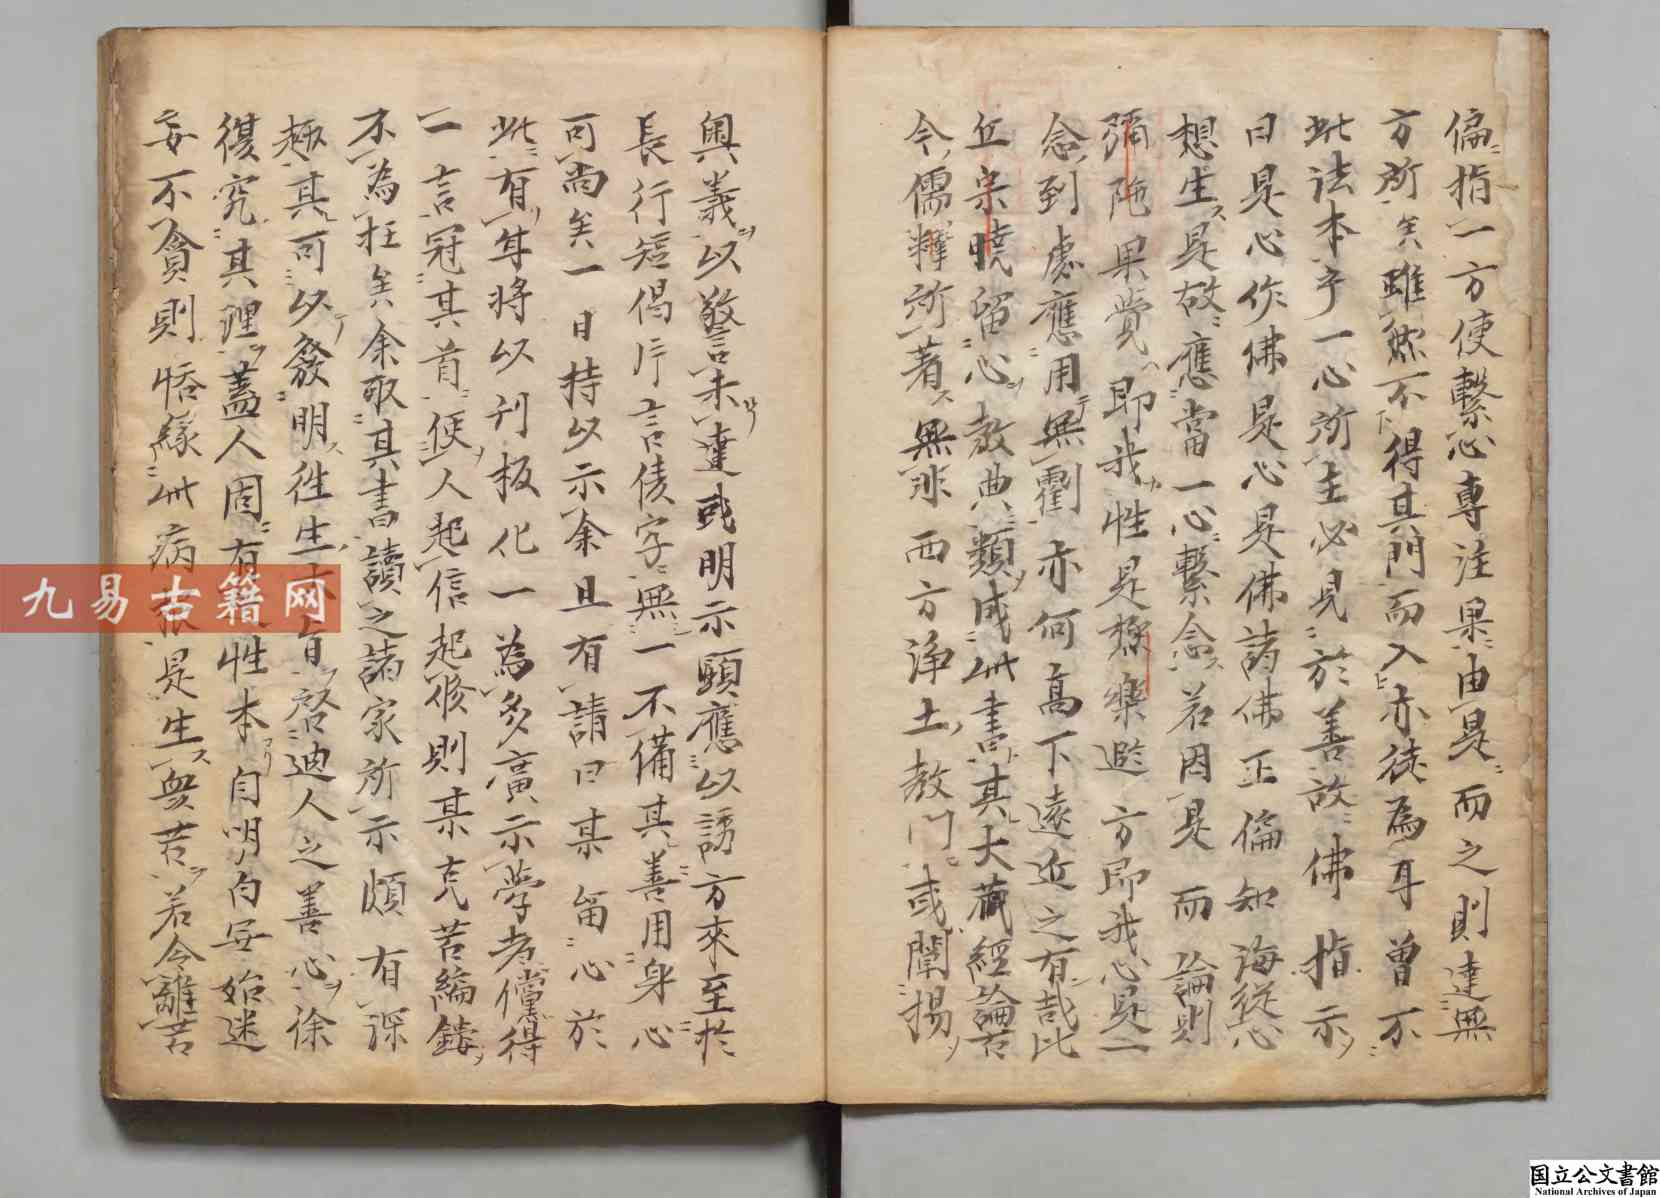 偏指一方使繫心專注果由是而之則達無
方所矣雖然不得其門而入亦徒為耳曾不
此法本乎一心所主必見於善故佛指示
曰是心作佛是心是佛諸佛正徧知海從心
想生是故應當一心繫念若因是而論則
彌陁果覺即我性是極樂遐方即我心是一
念到處應用無劃亦何高下遠近之有哉比
丘宗曉留心教典類成此書其大藏經論古
今儒釋所著無非西方淨土教門或闡揚
奥義以警未達或明示顕應以誘方來至於
長行短偈片言隻字無一不備其善用身心
可尚矣一日持以示余且有請曰某留心於
此有年將以刊板化一為多廣示學者儻得
一言冠其首使人起信起修則某克苦編鏤
不為枉矣余取其書讀之諸家所示頗有深
趣其可以發明徃生旨啓迪人之善心徐
復究其理蓋人固有性本自明白妄始迷
妄不貪則恡緣此病是生衆苦若今離苦
九易古籍网
国立公文書館
National Archives of Japan